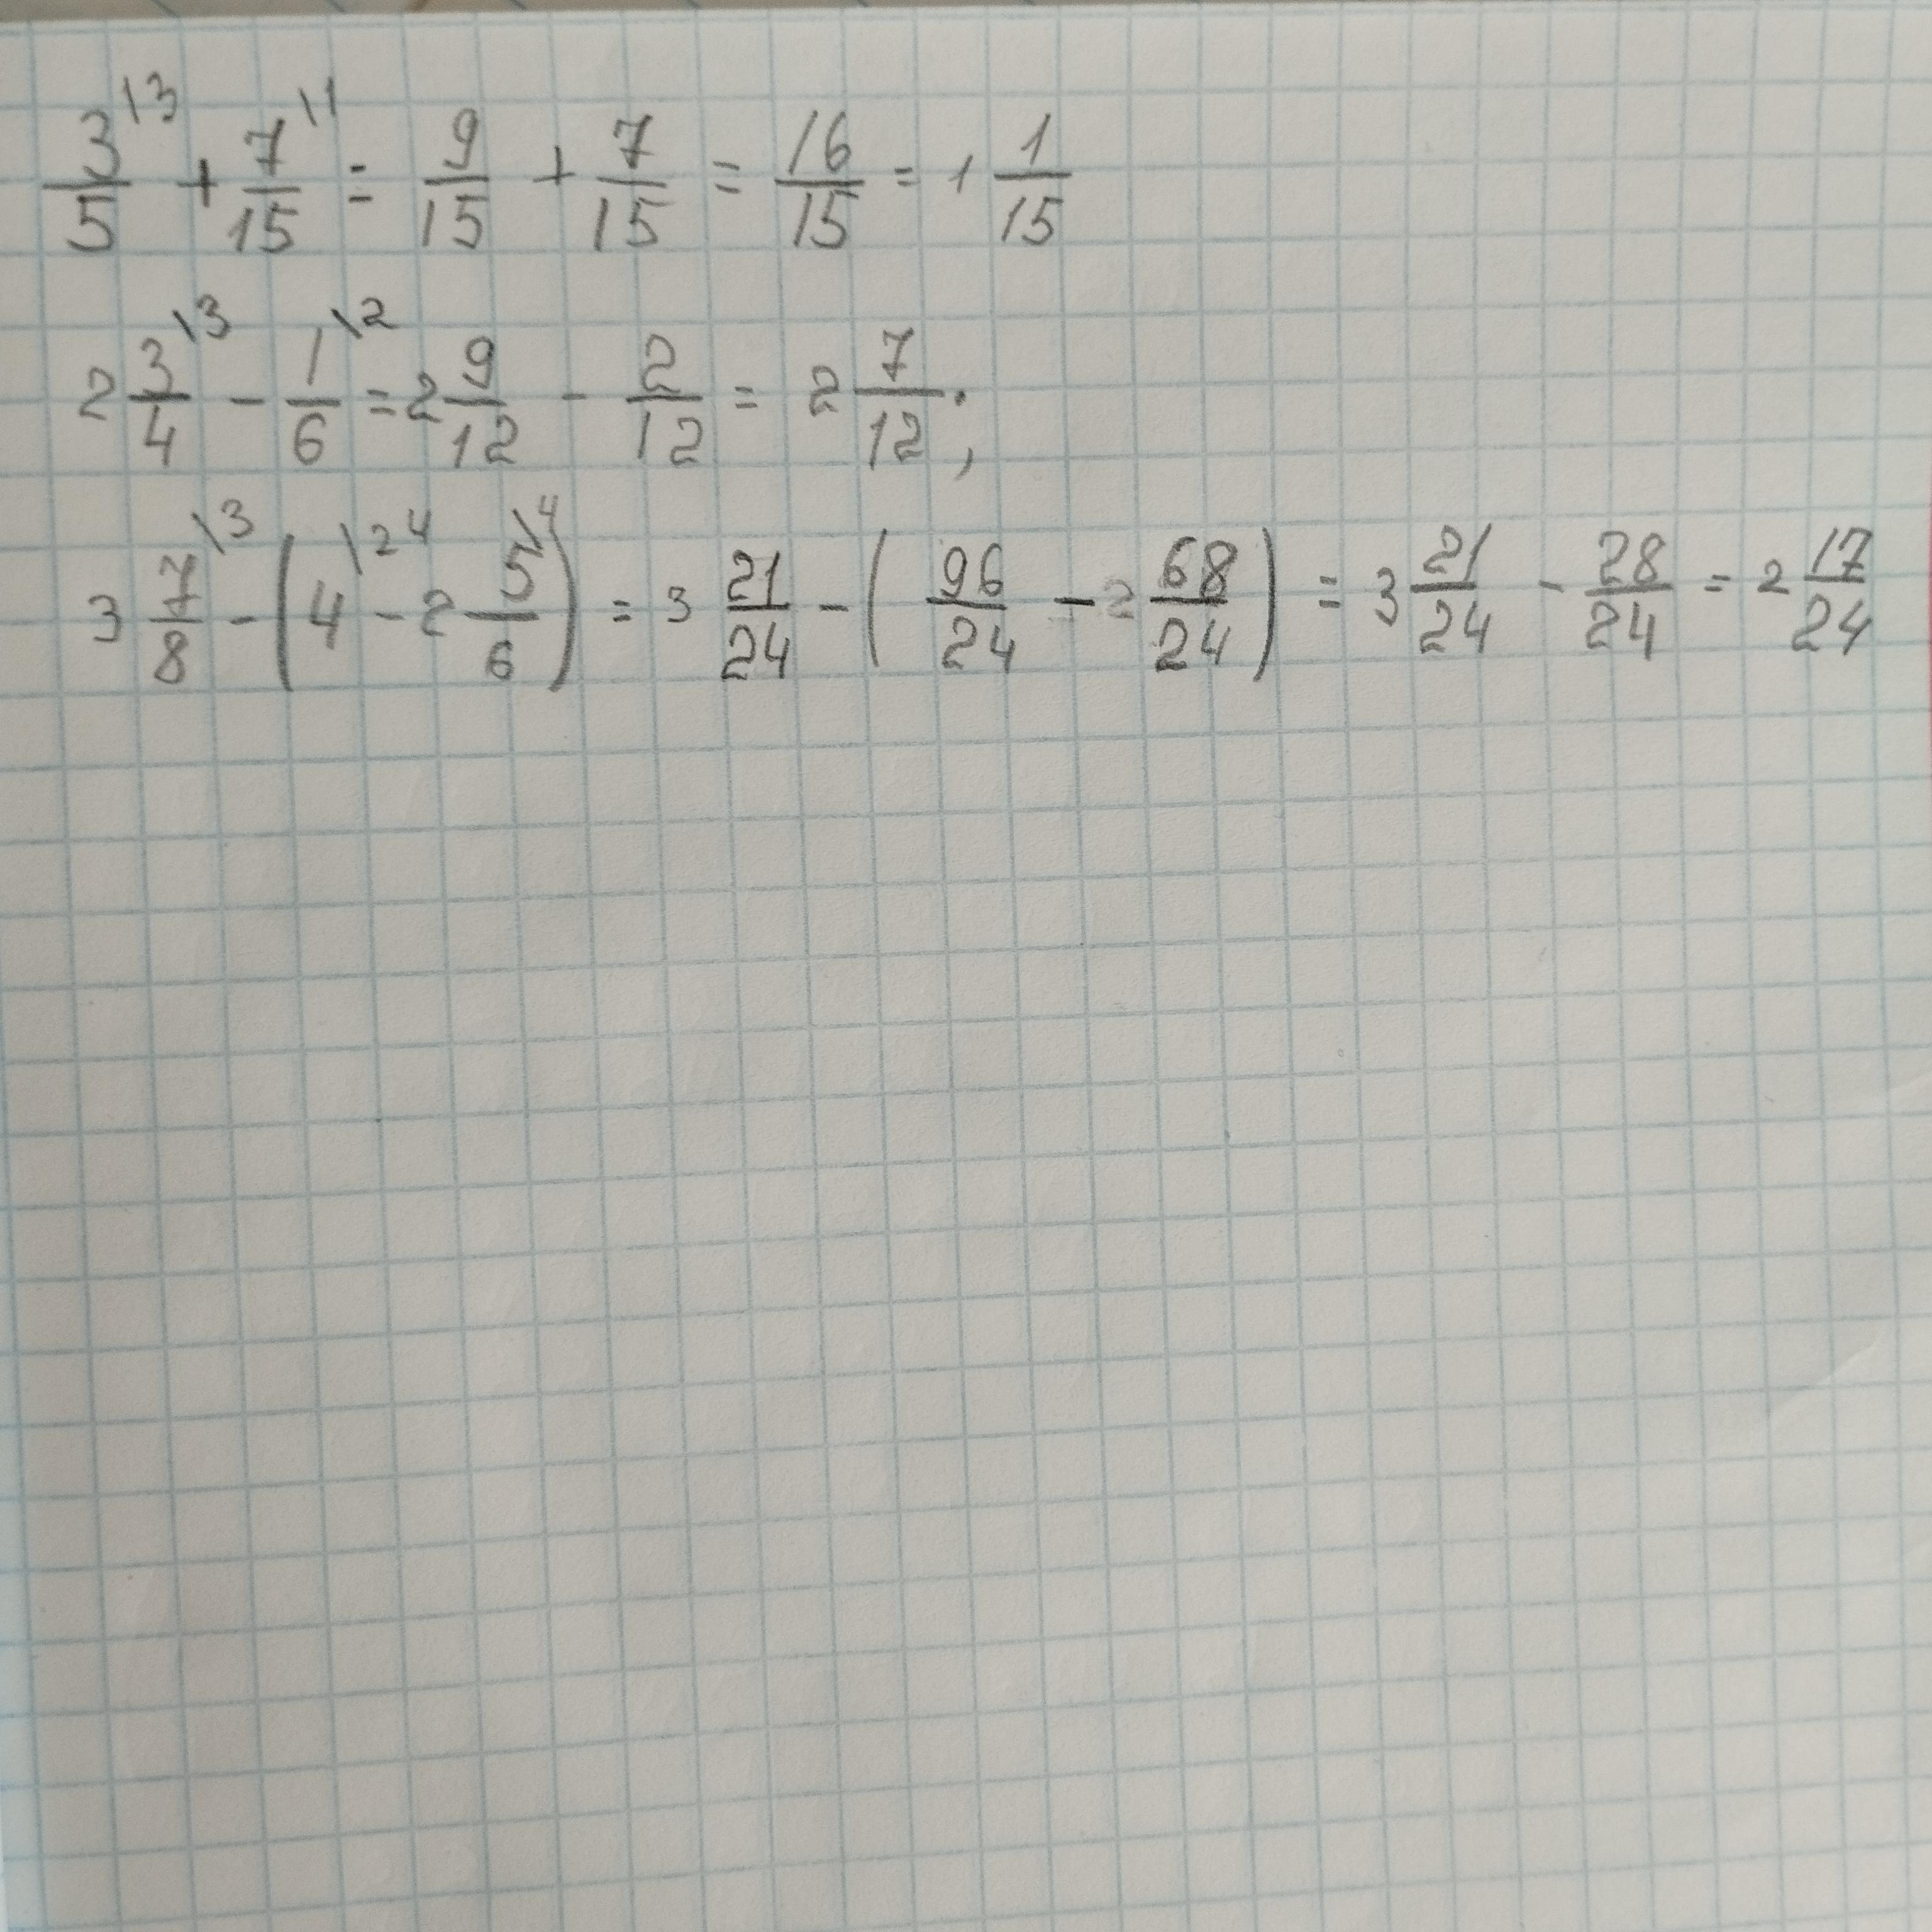 3/5 \3 + 7/15 \1 = 9/15 + 7/15 = 16/15 = 1 1/15
2 3/4 \3 - 1/6 \2 = 2 9/12 - 2/12 = 2 7/12 ;
3 7/8 \3 - ( 4 \24 - 2 5/6 \4 ) = 3 21/24 - ( 96/24 - 2 68/24 ) = 3 21/24 - 28/24 = 2 17/24